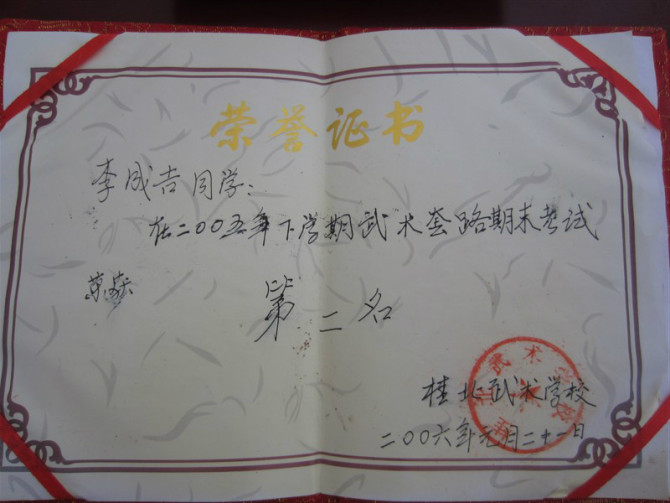 荣誉证书
李成吉同学:
在二〇〇五年下学期武术套路期末考试
荣获 第二名
桂北武术学校
二〇〇六年元月二十一日